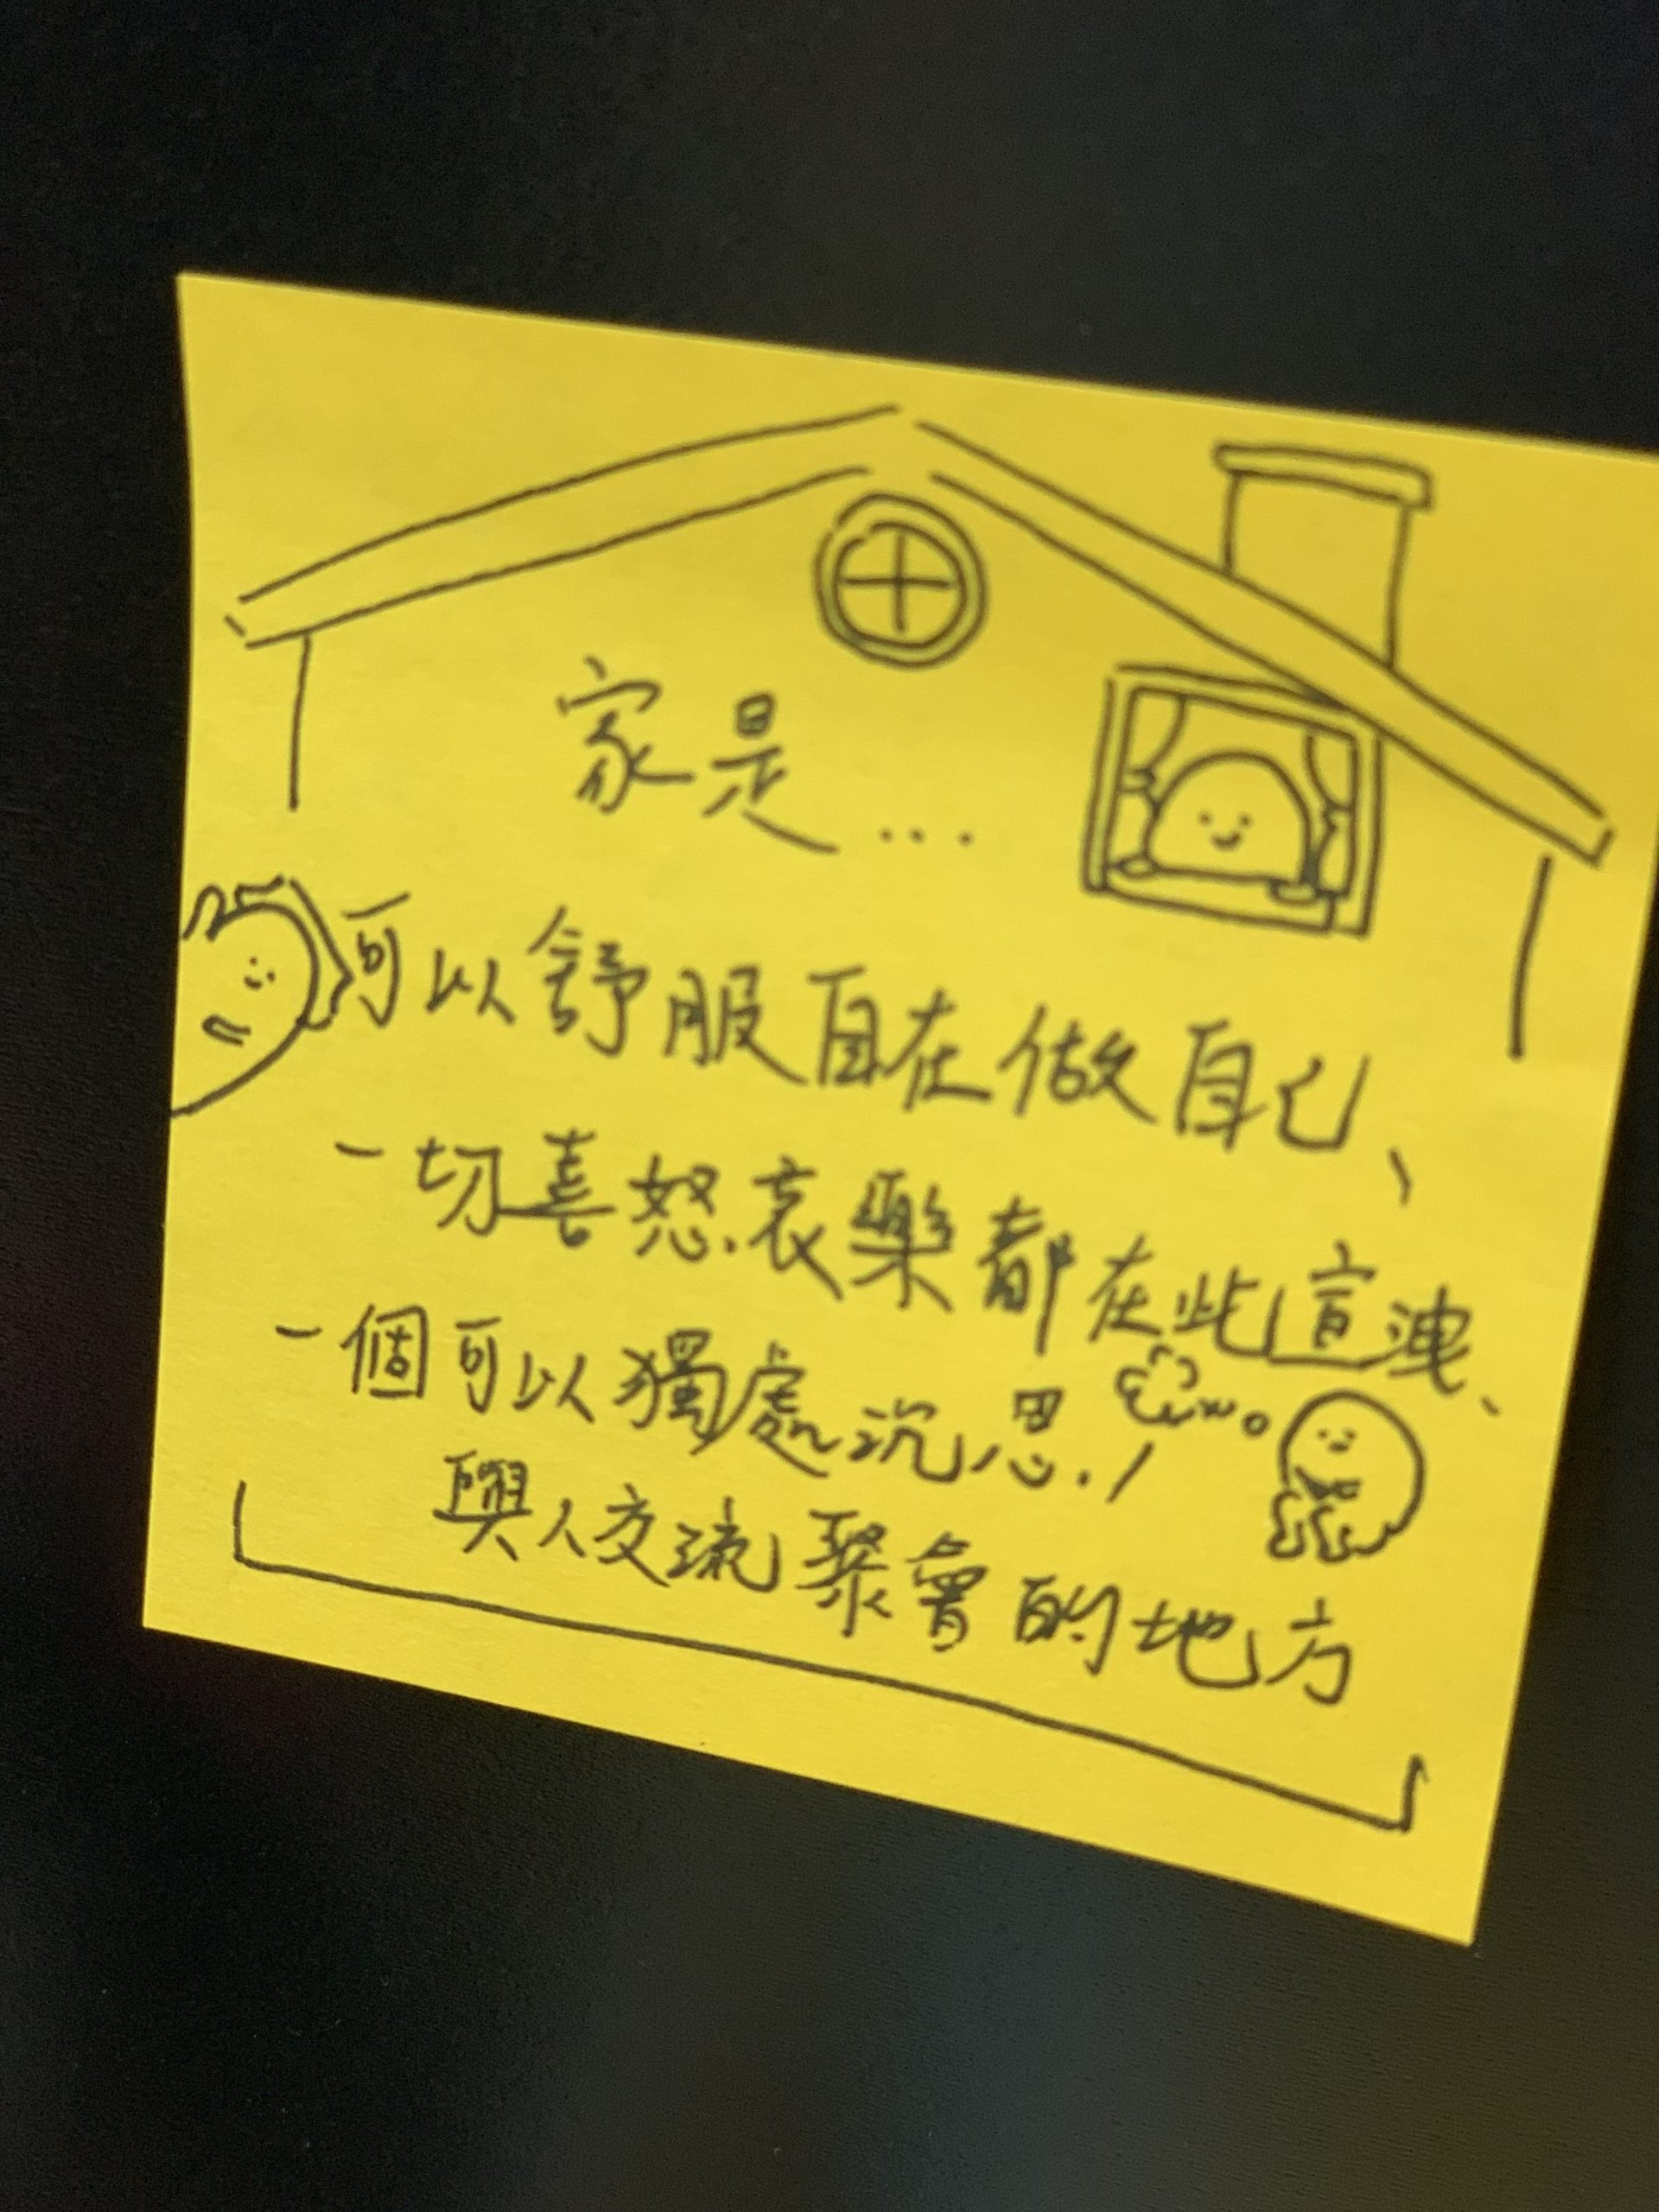 家是...
可以舒服自在做自己、
一切喜怒哀樂都在此宣洩、
一個可以獨處沉思./
與人交流聚會的地方